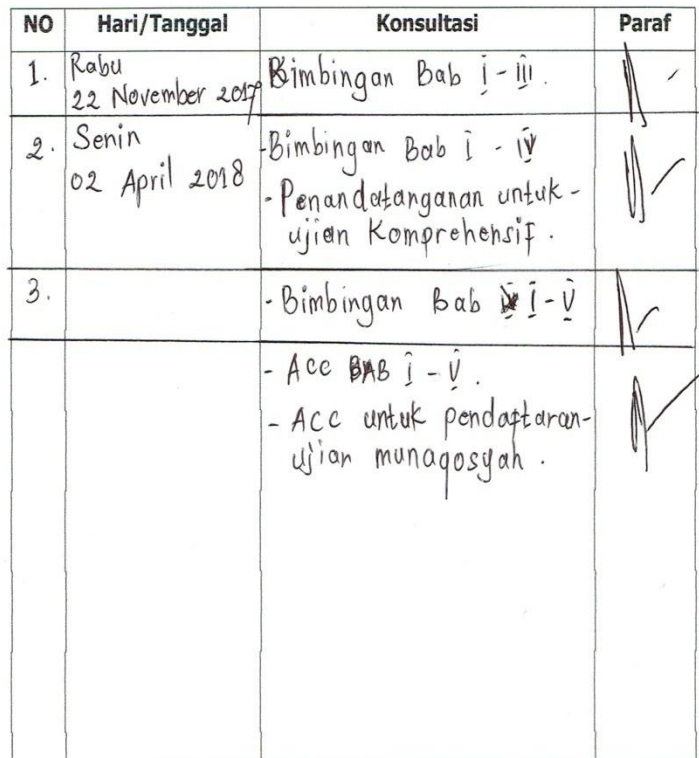 NO Hari/Tanggal Konsultasi Paraf
1. Rabu
22 November 2017 Bimbingan Bab I - III.
2. Senin
02 April 2018
-Bimbingan Bab I - IV
- Penandatanganan untuk -
ujian Komprehensif.
3.
- Bimbingan Bab I - V
- Acc BAB I - V.
- Acc untuk pendaftaran-
ujian munaqosyah.